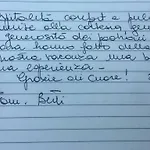 ospitalità, comfort e puli
unite alla cortesia, gen
generosità dei padroni
casa hanno fatto della
nostra vacanza una b
una esperienza -
Grazie di cuore!
Fam.